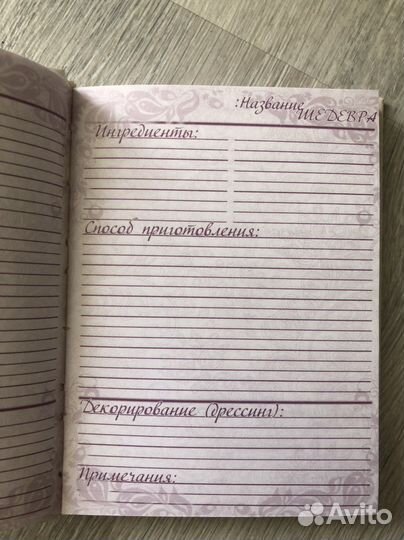 :Название
ШЕДЕВРА
Ингредиенты:
Способ приготовления:
Декорирование (дрессинг):
Примечания:
Avito